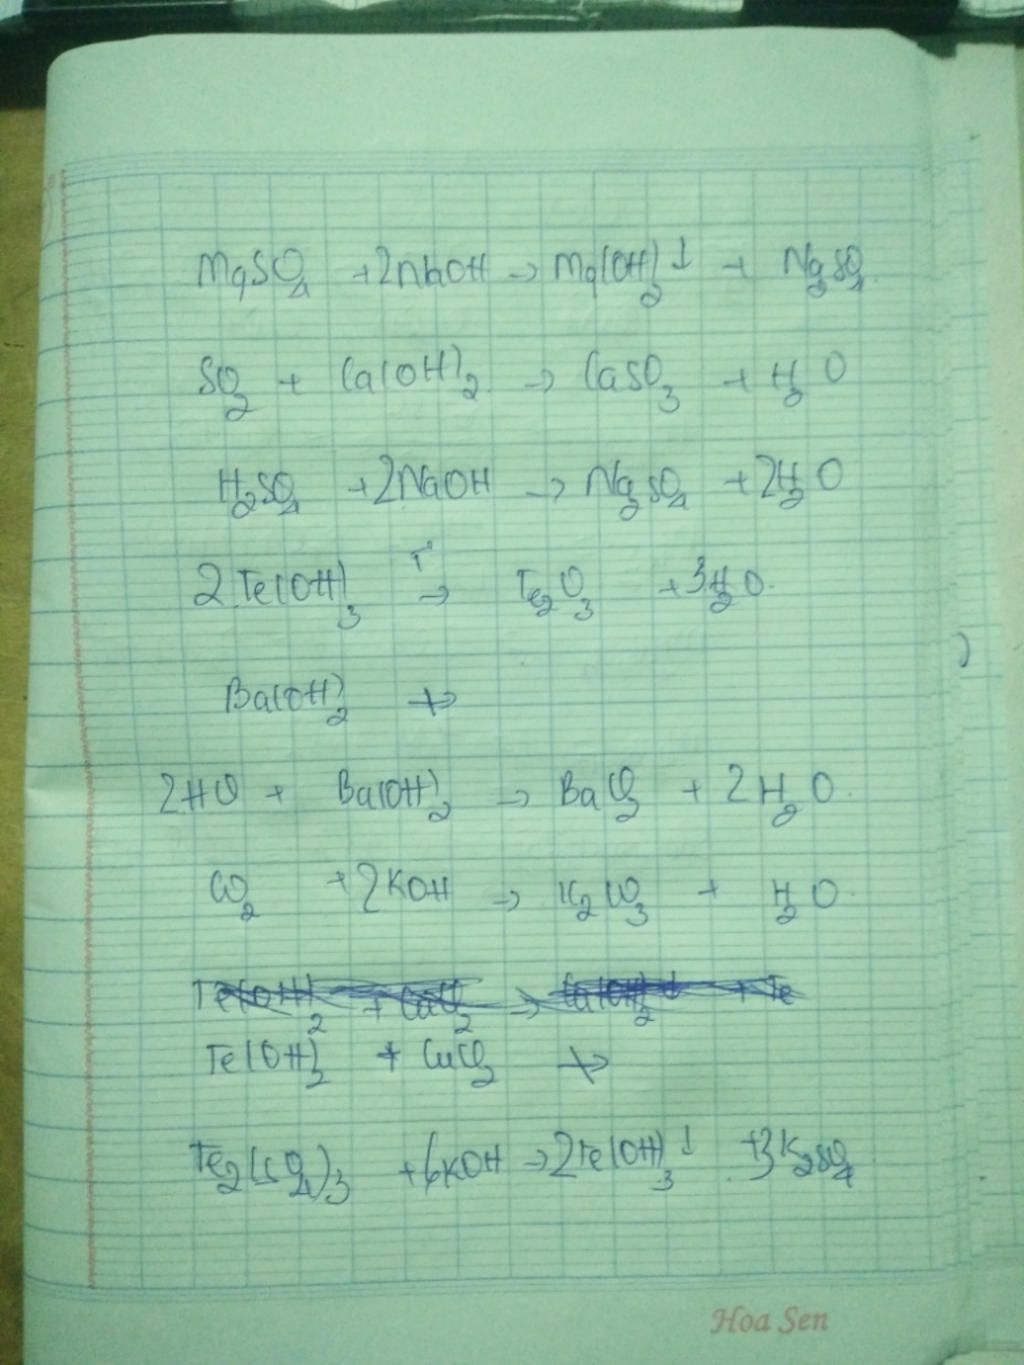 MgSO₄ + 2NaOH → Mg(OH)₂ ↓ + Na₂SO₄
SO₂ + Ca(OH)₂ → CaSO₃ + H₂O
H₂SO₄ + 2NaOH → Na₂SO₄ + 2H₂O
2Fe(OH)₃ →(T°) Fe₂O₃ + 3H₂O.
Ba(OH)₂ ↛
2HCl + Ba(OH)₂ → BaCl₂ + 2H₂O.
CO₂ + 2KOH → K₂CO₃ + H₂O.
Fe(OH)₂ + CuCl₂ ↛
Fe₂(SO₄)₃ + 6KOH → 2Fe(OH)₃ ↓ + 3K₂SO₄
Hoa Sen